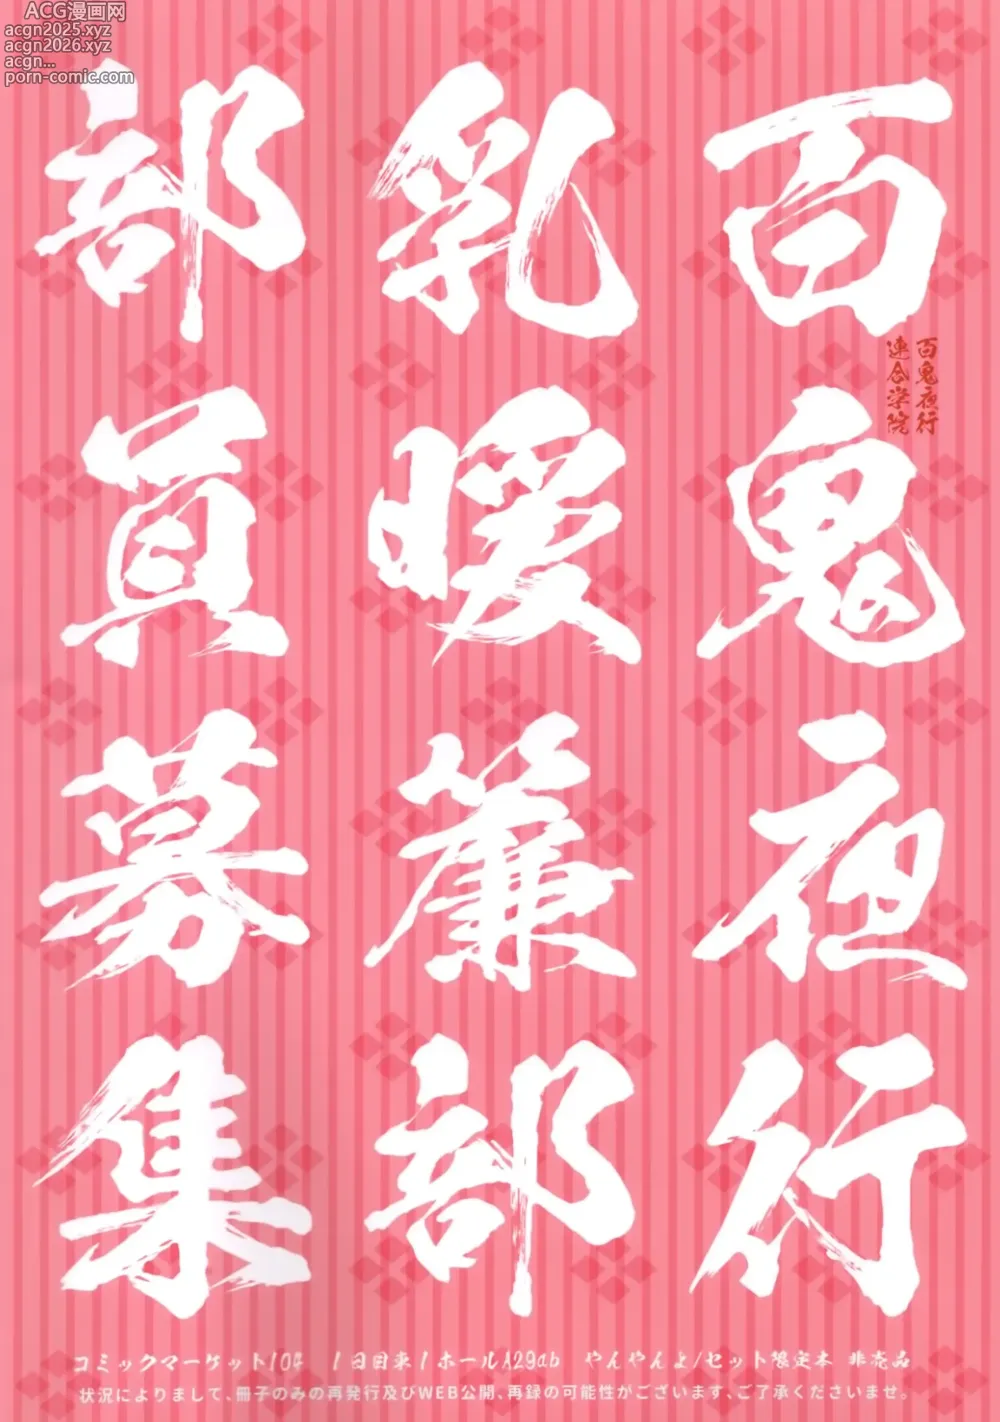 ACG漫画网
acgn2025.xyz
acgn2026.xyz
acgn...
porn-comic.com
百鬼夜行
百鬼夜行
連合学院
乳暖簾部
部員募集
コミックマーケット104 1日目東1ホールA29ab やんやんよ/セット限定本 非売品
状況によりまして、冊子のみの再発行及びWEB公開、再録の可能性がございます、ご了承くださいませ。